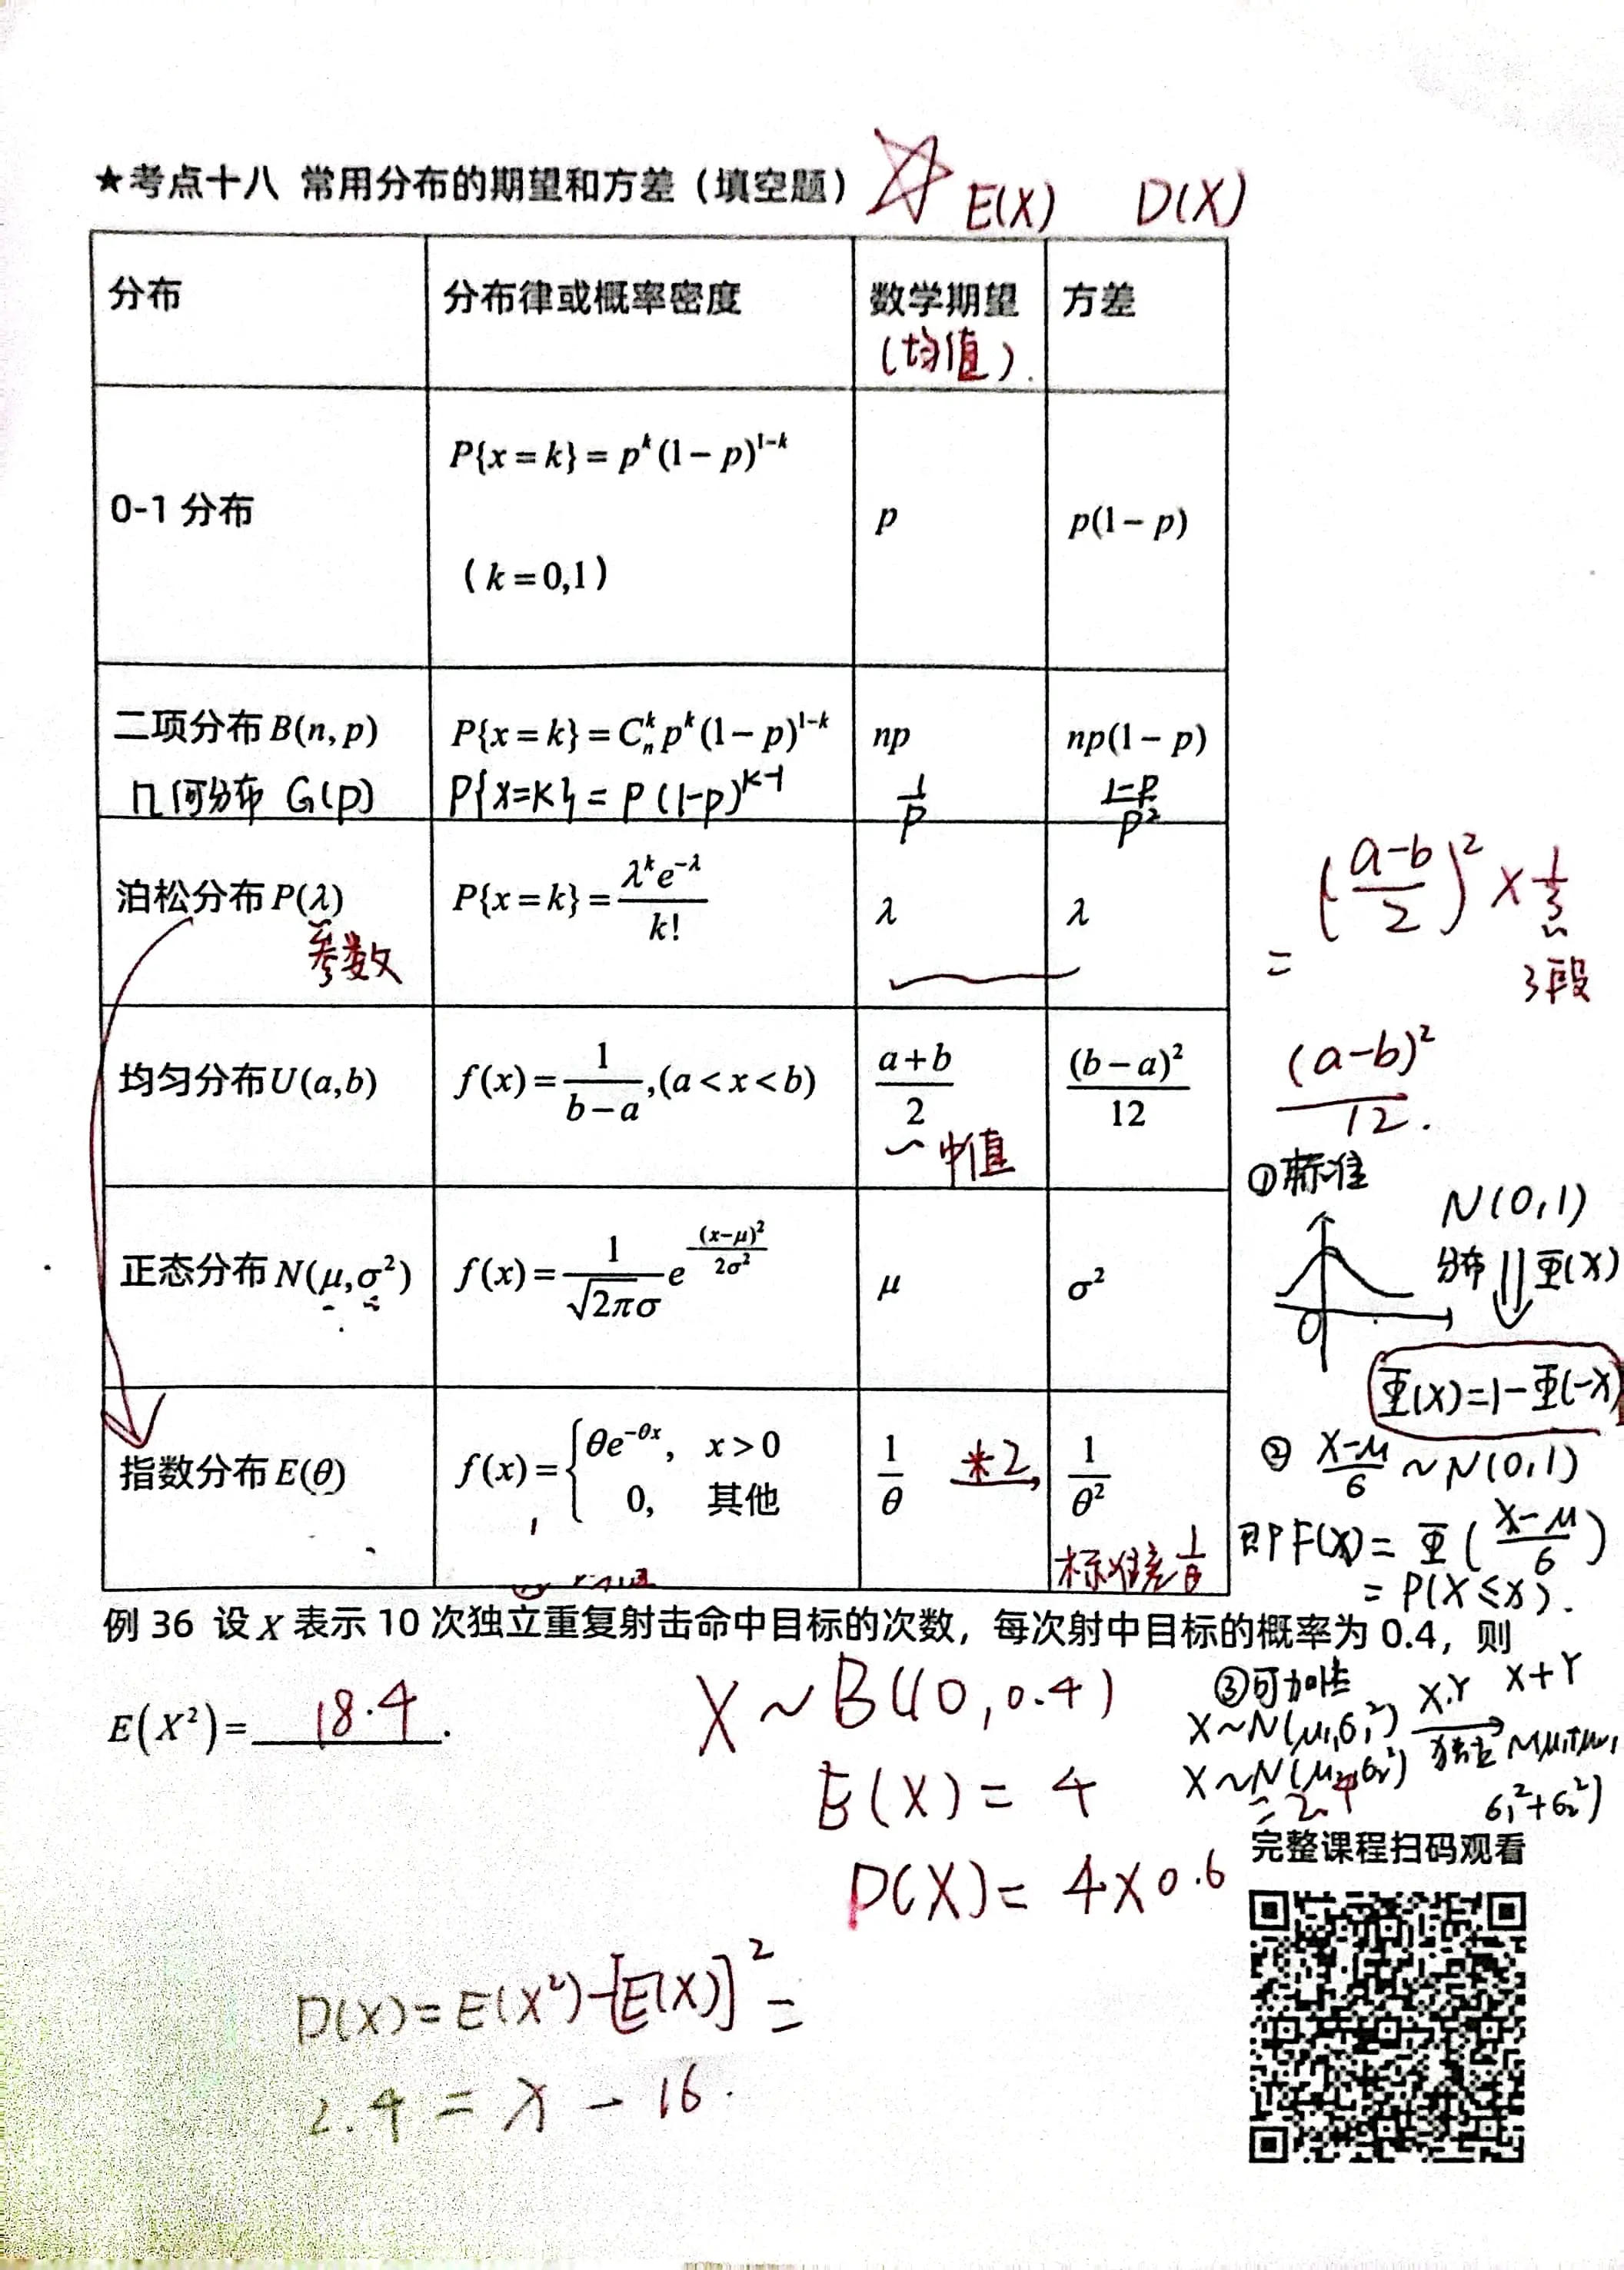 ★考点十八 常用分布的期望和方差（填空题） E(X) D(X)
分布 分布律或概率密度 数学期望 方差
（均值）.
0-1 分布 P{x=k}=p^k(1-p)^{1-k} p p(1-p)
（k=0,1）
二项分布 B(n,p) P{x=k}=C_n^k p^k(1-p)^{1-k} np np(1-p)
几何分布 G(p) P{x=k}=p(1-p)^{k-1} 1/p (1-p)/p^2
泊松分布 P(λ) P{x=k}=λ^k e^{-λ}/k! λ λ
参数
均匀分布 U(a,b) f(x)=1/(b-a),(a<x<b) (a+b)/2 (b-a)^2/12
中值
正态分布 N(μ,σ²) f(x)=1/(√2πσ) e^{-(x-μ)²/2σ²} μ σ²
指数分布 E(θ) f(x)={θe^{-θx}, x>0 1/θ *2 1/θ²
0, 其他
标准差 1/θ
((a-b)/2)² × 1/3
3段
= (a-b)²/12.
①标准
N(0,1)
分布 Φ(x)
0
Φ(x)=1-Φ(-x)
② (X-μ)/σ ~ N(0,1)
即 F(x)=Φ((x-μ)/σ)
= P(X≤x).
例 36 设 X 表示 10 次独立重复射击命中目标的次数，每次射中目标的概率为 0.4，则
E(X²)= 18.4 .
X~B(10,0.4)
E(X)= 4
D(X)= 4×0.6
=2.4
③可加性
X~N(μ₁,σ₁²) X,Y 独立 X+Y
X~N(μ₂,σ₂²)
σ₁²+σ₂²)
完整课程扫码观看
D(X)=E(X²)-[E(X)]²=
2.4 = x - 16.